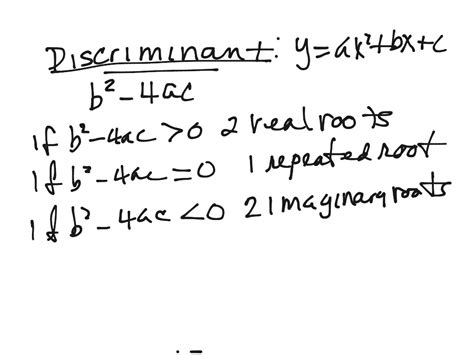 Discriminant: y=ax²+bx+c
b²-4ac
if b²-4ac>0 2 real roots
if b²-4ac=0 1 repeated root
if b²-4ac<0 2 imaginary roots